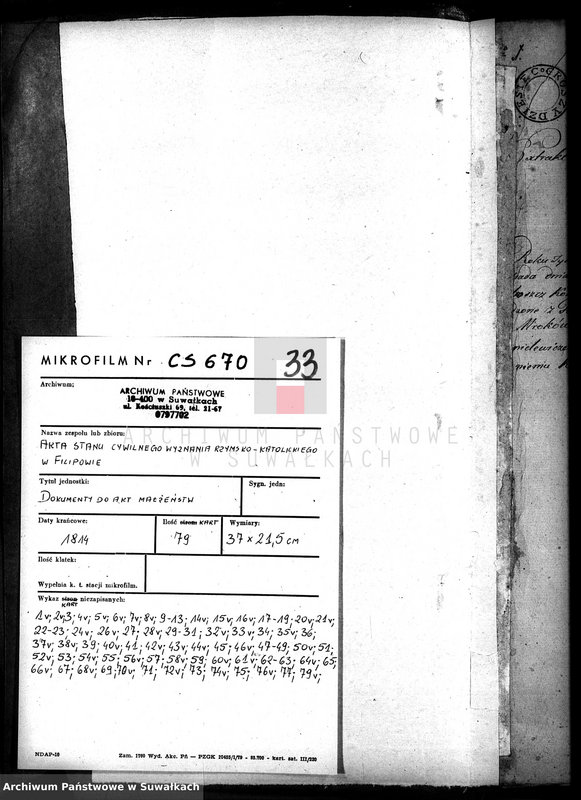 MIKROFILM Nr CS 670 33
Archiwum:
ARCHIWUM PAŃSTWOWE
16-400 w Suwałkach
ul. Kościuszki 69, tel. 21-67
0797702
ARCHIWUM PAŃSTWOWE
W SUWAŁKACH
Nazwa zespołu lub zbioru:
AKTA STANU CYWILNEGO WYZNANIA RZYMSKO-KATOLICKIEGO
W FILIPOWIE
Tytuł jednostki: Sygn. jedn:
DOKUMENTY DO AKT MAŁŻEŃSTW
Daty krańcowe: Ilość stron KART Wymiary:
1814 79 37 x 21,5 cm
Ilość klatek:
Wypełnia k. t. stacji mikrofilm.
Wykaz stron niezapisanych:
KART
1v; 2v; 3; 4v; 5v; 6v; 7v; 8v; 9-13; 14v; 15v; 16v; 17-19; 20v; 21v;
22-23; 24v; 26v; 27; 28v; 29-31; 32v; 33v; 34; 35v; 36;
37v; 38v; 39; 40v; 41; 42v; 43v; 44v; 45; 46v; 47-49; 50v; 51;
52v; 53; 54v; 55; 56v; 57; 58v; 59; 60v; 61v; 62-63; 64v; 65;
66v; 67; 68v; 69; 70v; 71; 72v; 73; 74v; 75; 76v; 77; 79v;
NDAP-10 Zam. 1780 Wyd. Akc. PS — PZGK
Archiwum Państwowe w Suwałkach